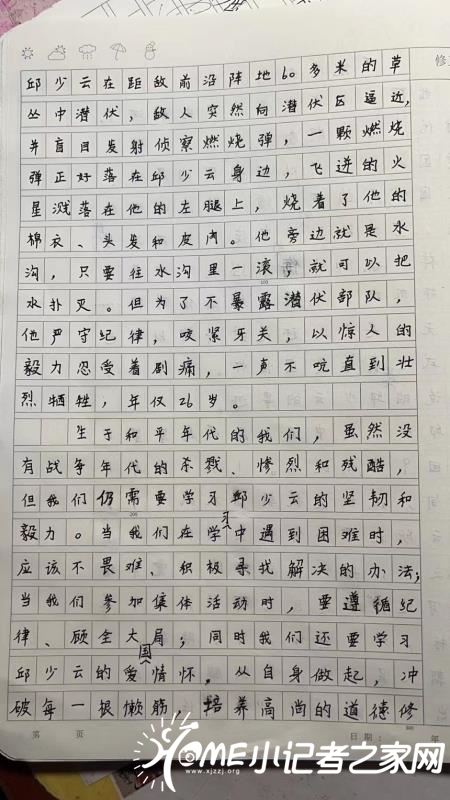 修
邱少云在距敌前沿阵地60多米的草
丛中潜伏，敌人突然向潜伏区逼近，
并盲目发射侦察燃烧弹，一颗燃烧
弹正好落在邱少云身边，飞迸的火
星溅落在他的左腿上，烧着了他的
棉衣、头发和皮肉。他旁边就是水
沟，只要往水沟里一滚，就可以把
水扑灭。但为了不暴露潜伏部队，
他严守纪律，咬紧牙关，以惊人的
毅力忍受着剧痛，一声不吭直到壮
烈牺牲，年仅26岁。
生于和平年代的我们，虽然没
有战争年代的杀戮、惨烈和残酷，
但我们仍需要学习邱少云的坚韧和
毅力。当我们在学习中遇到困难时，
应该不畏难、积极寻找解决的办法；
当我们参加集体活动时，要遵循纪
律、顾全大局；同时我们还要学习
邱少云的爱国情怀。从自身做起，冲
破每一根懒筋，培养高尚的道德修
第 页 日期： 年
HOME小记者之家网
www.xjzzj.org